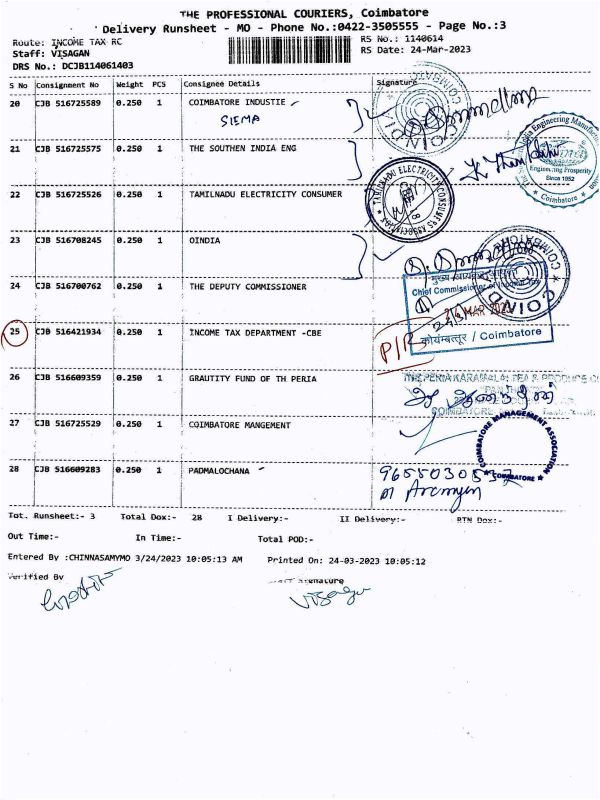 THE PROFESSIONAL COURIERS, Coimbatore
Delivery Runsheet - MO - Phone No.:0422-3505555 - Page No.:3
Route: INCOME TAX RC RS No.: 1140614
Staff: VISAGAN RS Date: 24-Mar-2023
DRS No.: DCJB114061403
S No Consignment No Weight PCS Consignee Details Signature
20 CJB 516725589 0.250 1 COIMBATORE INDUSTIE
SIEMA
21 CJB 516725575 0.250 1 THE SOUTHEN INDIA ENG
22 CJB 516725526 0.250 1 TAMILNADU ELECTRICITY CONSUMER
23 CJB 516708245 0.250 1 OINDIA
24 CJB 516700762 0.250 1 THE DEPUTY COMMISSIONER
25 CJB 516421934 0.250 1 INCOME TAX DEPARTMENT -CBE
26 CJB 516609359 0.250 1 GRAUTITY FUND OF TH PERIA
27 CJB 516725529 0.250 1 COIMBATORE MANGEMENT
28 CJB 516609283 0.250 1 PADMALOCHANA
COINDIA
Engineering Prosperity
Since 1952
Coimbatore
TAMILNADU ELECTRICITY CONSUMERS ASSOCIATION
COIMBATORE
COIND
मुख्य आयकर आयुक्त
Chief Commissioner of Income Tax
MAR 2023
कोयंबत्तूर / Coimbatore
P/R
THE PERIA KARAMALAI TEA & PRODUCE CO
COIMBATORE
COIMBATORE MANAGEMENT ASSOCIATION
COIMBATORE
Tot. Runsheet:- 3 Total Dox:- 28 I Delivery:- II Delivery:- RTN Dox:-
Out Time:- In Time:- Total POD:-
Entered By :CHINNASAMYMO 3/24/2023 10:05:13 AM Printed On: 24-03-2023 10:05:12
Verified By Signature
Visagan